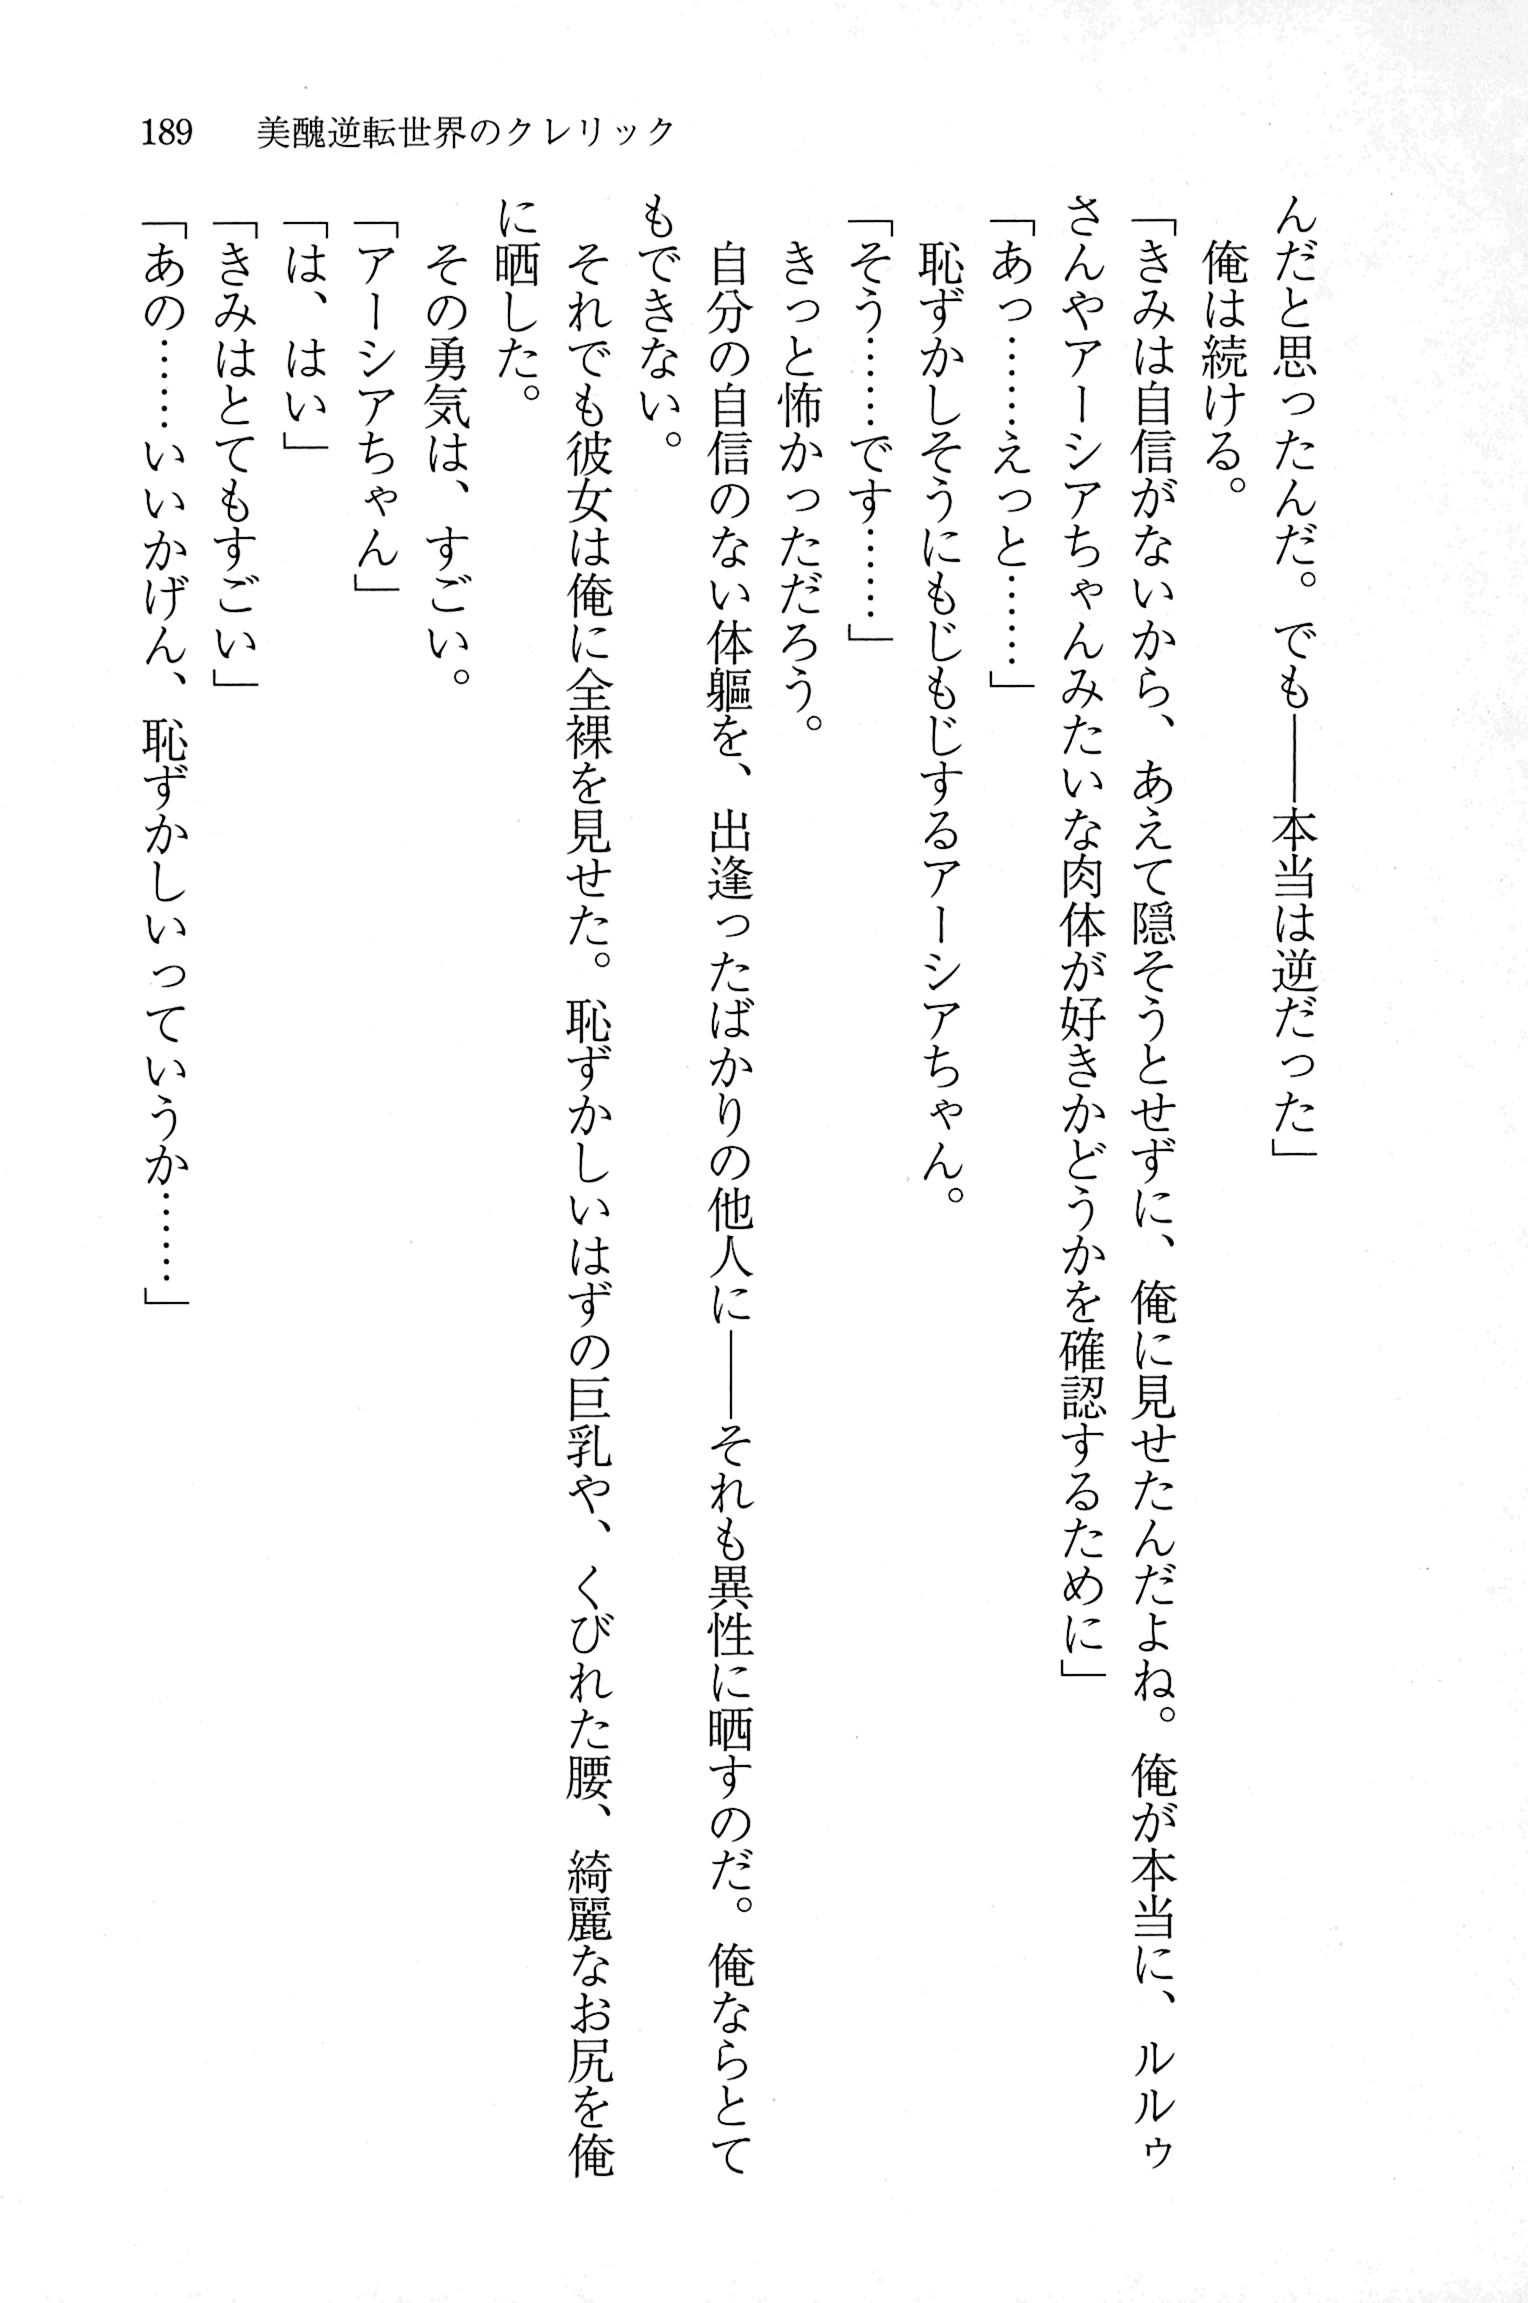 189 美醜逆転世界のクレリック
んだと思ったんだ。でも――本当は逆だった」
　俺は続ける。
「きみは自信がないから、あえて隠そうとせずに、俺に見せたんだよね。俺が本当に、ルルゥ
さんやアーシアちゃんみたいな肉体が好きかどうかを確認するために」
「あっ……えっと……」
　恥ずかしそうにもじもじするアーシアちゃん。
「そう……です……」
　きっと怖かっただろう。
　自分の自信のない体軀を、出逢ったばかりの他人に――それも異性に晒すのだ。俺ならとて
もできない。
　それでも彼女は俺に全裸を見せた。恥ずかしいはずの巨乳や、くびれた腰、綺麗なお尻を俺
に晒した。
　その勇気は、すごい。
「アーシアちゃん」
「は、はい」
「きみはとてもすごい」
「あの……いいかげん、恥ずかしいっていうか……」